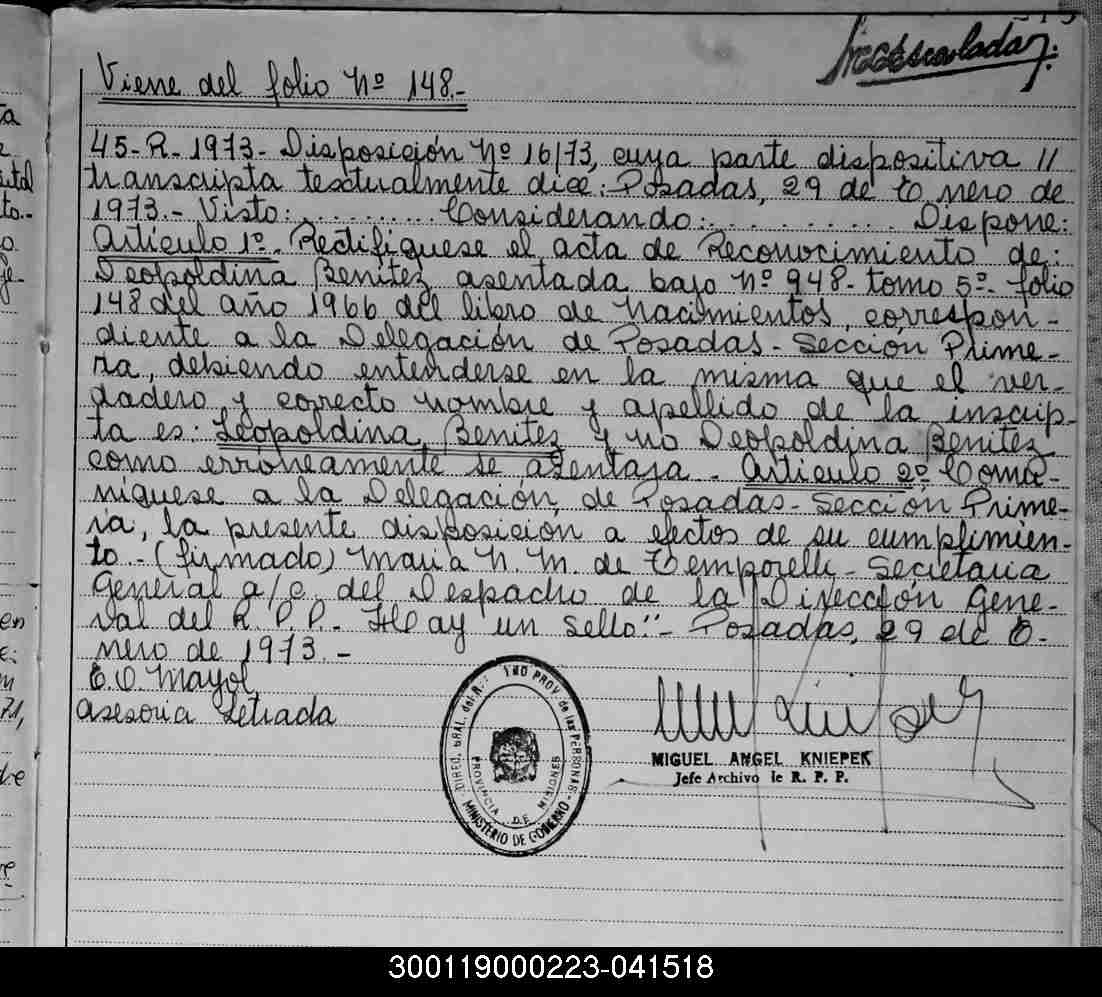 Viene del folio Nº 148.-
45-R-1973- Disposición Nº 16/73, cuya parte dispositiva //
transcripta textualmente dice: Posadas, 29 de Enero de
1973.- Visto: .......... Considerando: .......... Dispone:
Artículo 1º- Rectifiquese el acta de Reconocimiento de:
Deopoldina Benitez asentada bajo Nº 948- tomo 5º- folio
148 del año 1966 del libro de Nacimientos, correspon-
diente a la Delegación de Posadas- Sección Prime-
ra, debiendo entenderse en la misma que el ver-
dadero y correcto nombre y apellido de la inscrip-
ta es: Leopoldina Benitez y no Deopoldina Benitez
como erróneamente se asentara - Artículo 2º Comu-
niquese a la Delegación, de Posadas- Sección Prime-
ra, la presente disposición a efectos de su cumplimien-
to.- (firmado) Maria N. M. de Temporelli- Secretaria
General a/c. del Despacho de la Dirección Gene-
ral del R. P. P.- Hay un sello:"- Posadas, 29 de E-
nero de 1973.-
E.O. Mayol
Asesoria Letrada
DIREC. GRAL. del R. PROV. de las PERSONAS
PROVINCIA DE MISIONES
MINISTERIO DE GOBIERNO
MIGUEL ANGEL KNIEPEK
Jefe Archivo de R. P. P.
300119000223-041518